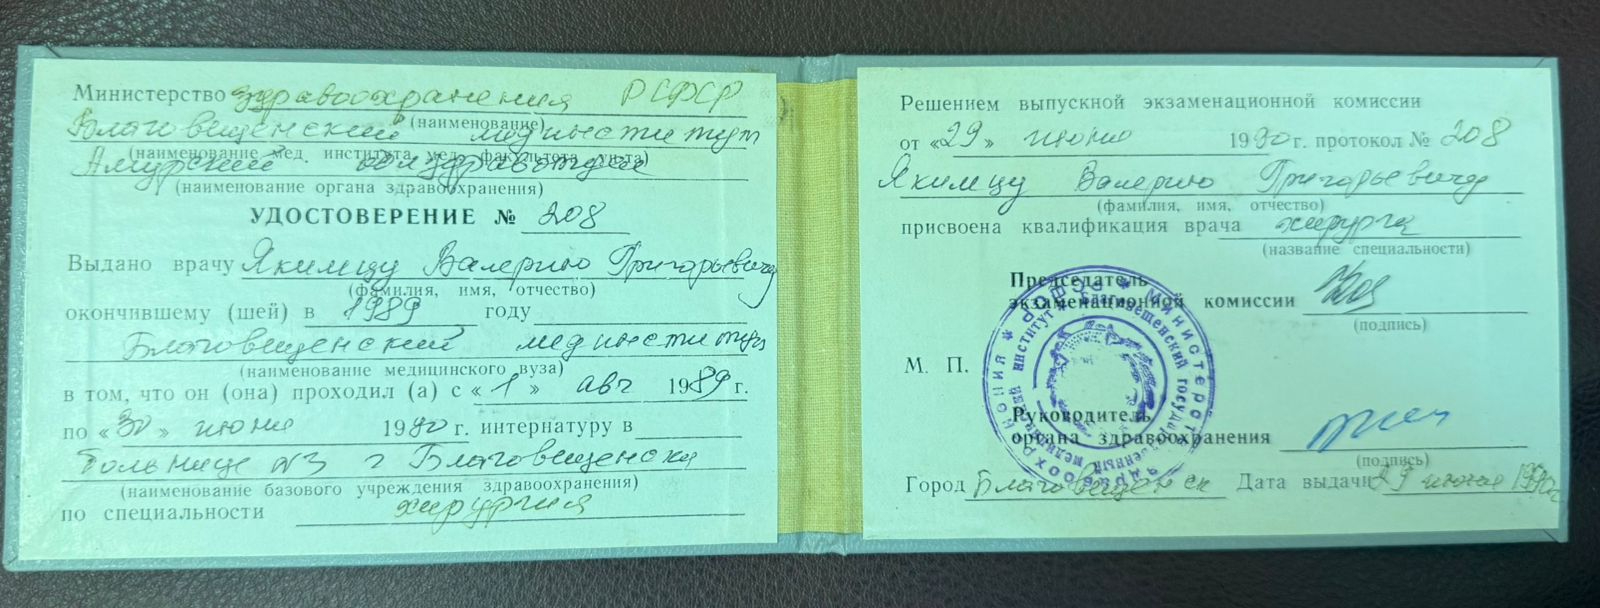 Министерство здравоохранения РСФСР
(наименование)
Благовещенский мединститут
(наименование мед. института, мед. факультета, ун-та)
Амурский облздравотдел
(наименование органа здравоохранения)
УДОСТОВЕРЕНИЕ № 208
Выдано врачу Якимцу Валерию Григорьевичу
(фамилия, имя, отчество)
окончившему (шей) в 1989 году
Благовещенский мединститут
(наименование медицинского вуза)
в том, что он (она) проходил (а) с «1» авг 1989 г.
по «30» июня 1990 г. интернатуру в
больнице №3 г Благовещенска
(наименование базового учреждения здравоохранения)
по специальности хирургия
Решением выпускной экзаменационной комиссии
от «29» июня 1990 г. протокол № 208
Якимцу Валерию Григорьевичу
(фамилия, имя, отчество)
присвоена квалификация врача хирурга
(название специальности)
Председатель
экзаменационной комиссии
(подпись)
М. П.
Руководитель
органа здравоохранения
(подпись)
Город Благовещенск Дата выдачи 29 июня 1990г
Министерство здравоохранения РСФСР
Благовещенский государственный медицинский институт